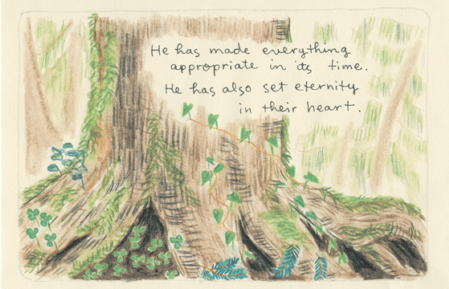 He has made everything
appropriate in its time.
He has also set eternity
in their heart.